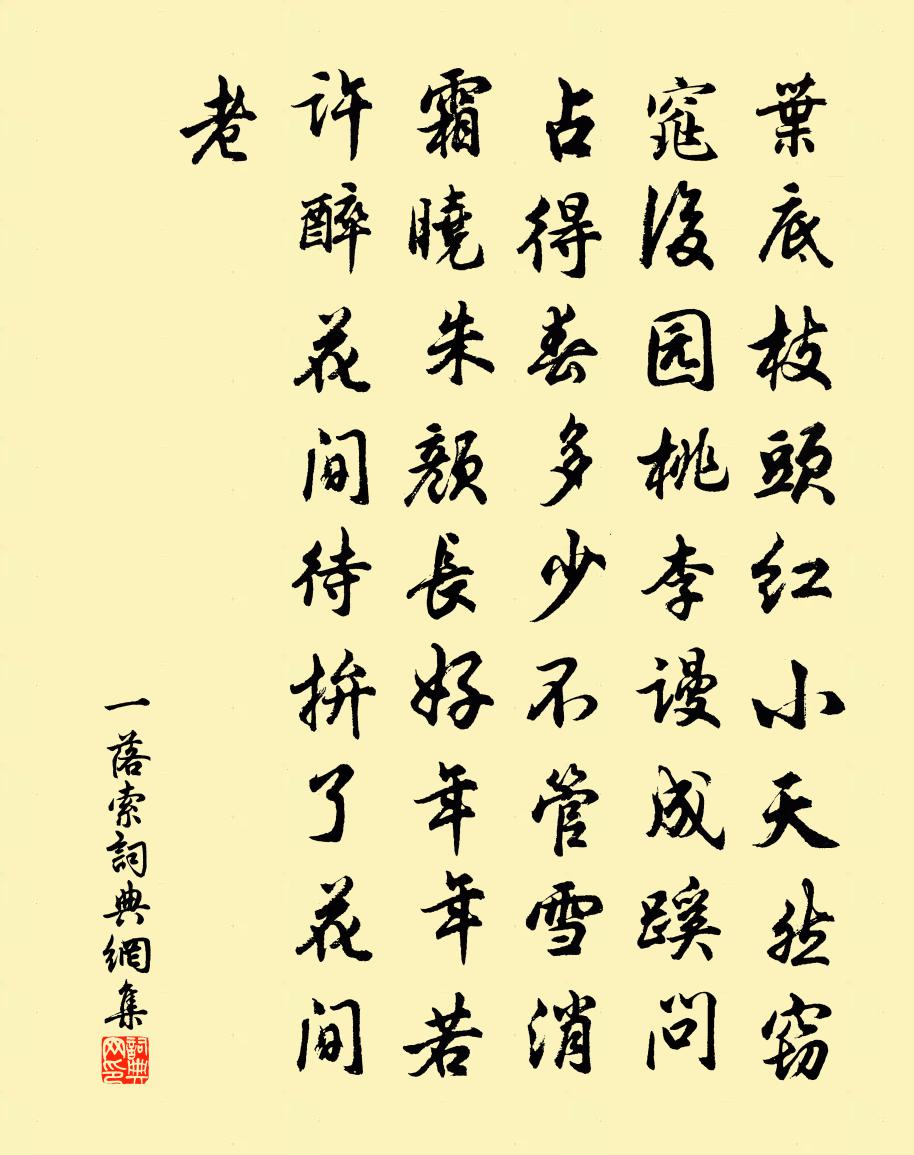 葉底枝頭紅小天然窈
窕後园桃李谩成蹊問
占得春多少不管雪消
霜曉朱顏長好年年若
許醉花間待拚了花間
老
一落索詞典網集
詞典网印